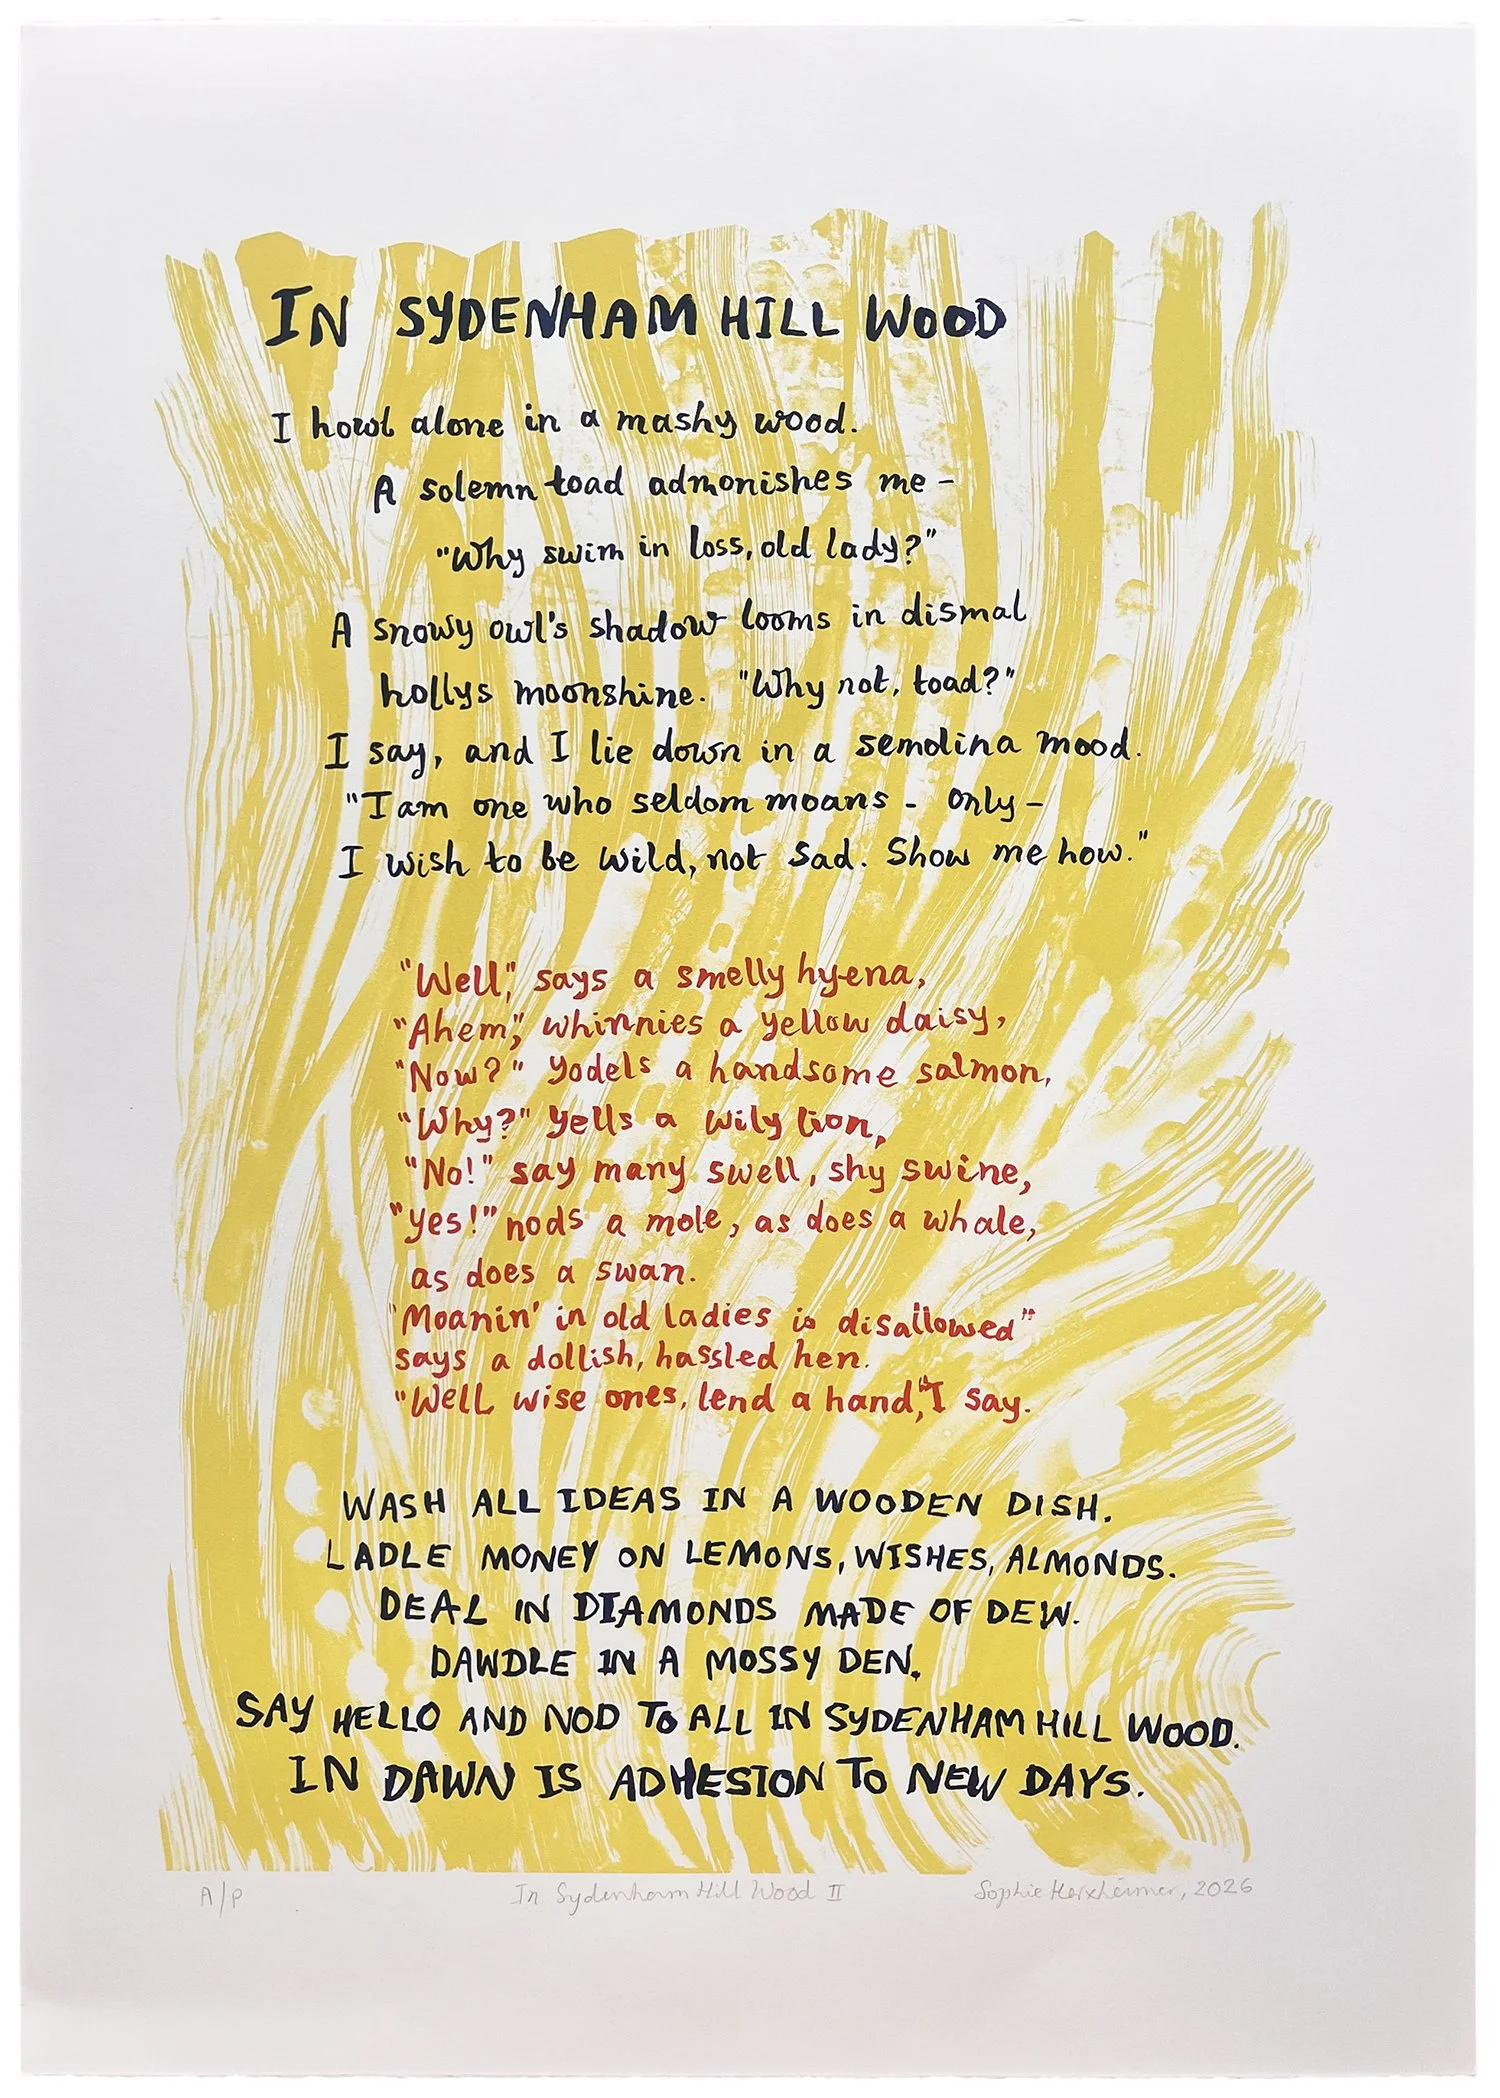 IN SYDENHAM HILL WOOD
I howl alone in a mashy wood.
A solemn toad admonishes me –
"Why swim in loss, old lady?"
A snowy owl's shadow looms in dismal
hollys moonshine. "Why not, toad?"
I say, and I lie down in a semolina mood.
"I am one who seldom moans - only –
I wish to be wild, not sad. Show me how."
"Well," says a smelly hyena,
"Ahem," whinnies a yellow daisy,
"Now?" yodels a handsome salmon,
"Why?" yells a wily lion,
"No!" say many swell, shy swine,
"Yes!" nods a mole, as does a whale,
as does a swan.
"Moanin' in old ladies is disallowed"
says a dollish, hassled hen.
"Well wise ones, lend a hand," I say.
WASH ALL IDEAS IN A WOODEN DISH.
LADLE MONEY ON LEMONS, WISHES, ALMONDS.
DEAL IN DIAMONDS MADE OF DEW.
DAWDLE IN A MOSSY DEN.
SAY HELLO AND NOD TO ALL IN SYDENHAM HILL WOOD.
IN DAWN IS ADHESION TO NEW DAYS.
A/P In Sydenham Hill Wood II Sophie Herxheimer, 2026